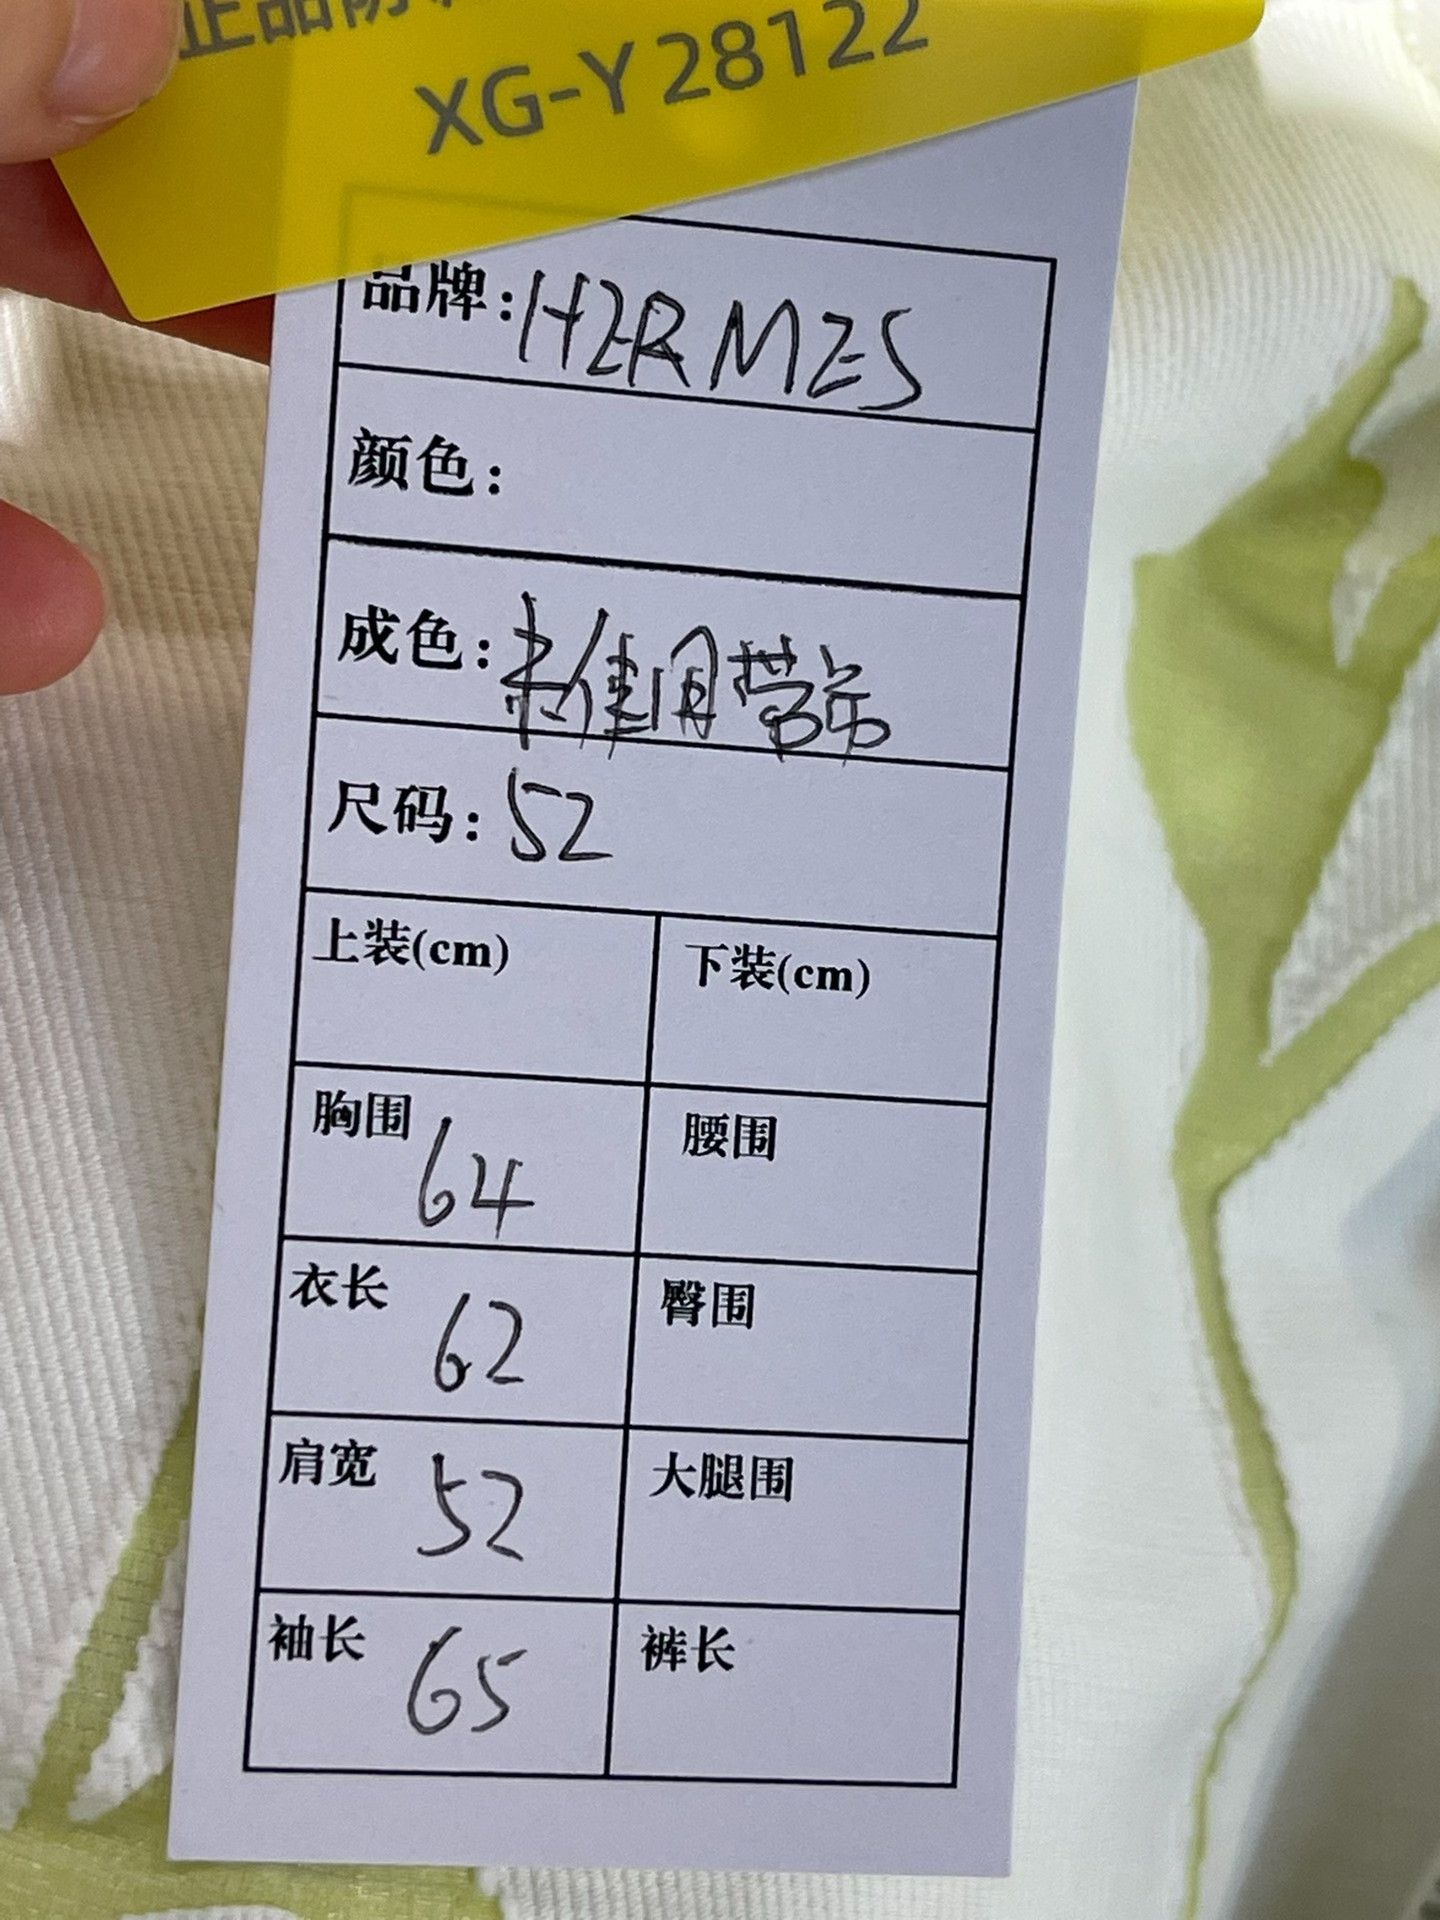 正品防
XG-Y 28122
品牌: HERMES
颜色:
成色: 未使用带吊
尺码: 52
上装(cm) 下装(cm)
胸围 64 腰围
衣长 62 臀围
肩宽 52 大腿围
袖长 65 裤长